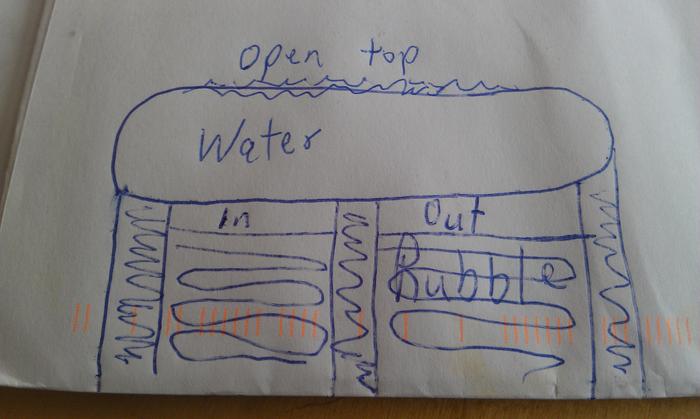 Open top
Water
In Out
Bubble